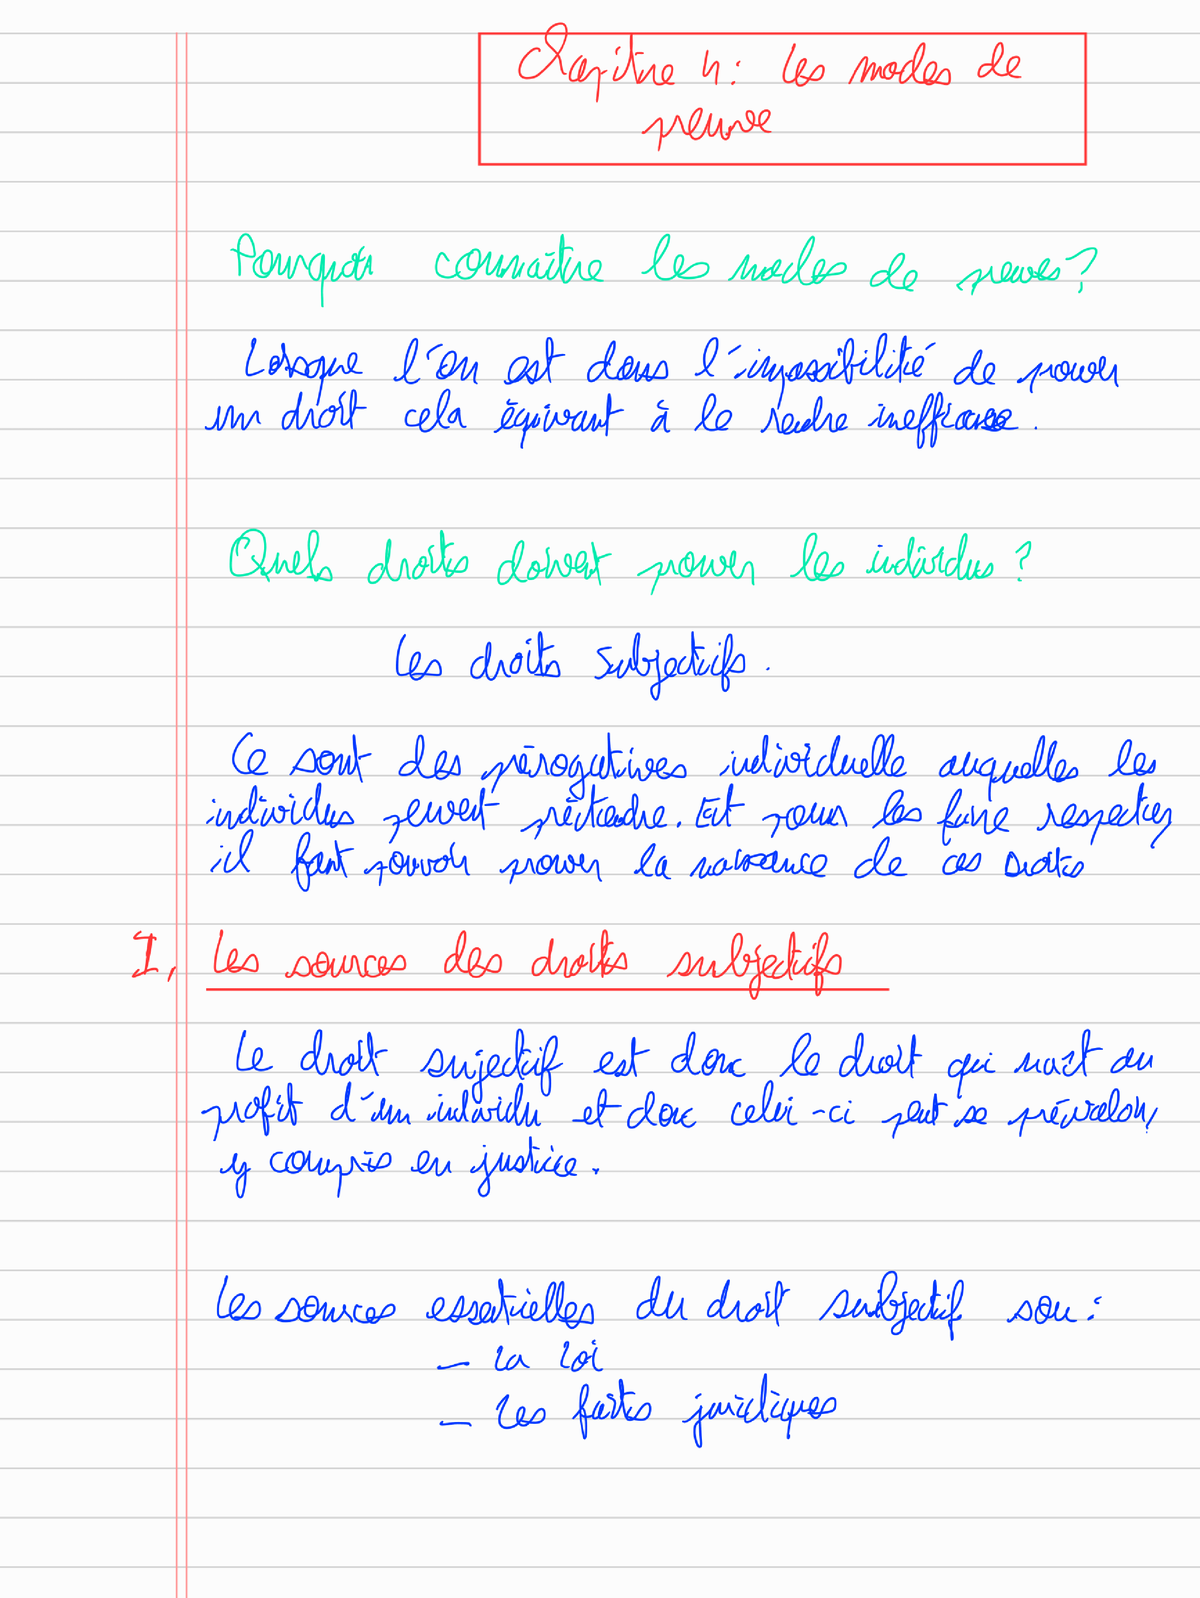 Chapitre 4 : Les modes de
preuve
Pourquoi connaître les modes de preuves ?
Lorsque l'on est dans l'impossibilité de prouver
un droit cela équivaut à le rendre inefficace.
Quels droits doivent prouver les individus ?
Les droits subjectifs.
Ce sont des pérogatives individuelle auquelles les
individus peuvent prétendre. Et pour les faire respecter,
il faut pouvoir prouver la naissance de ces Droits
I, Les sources des droits subjectifs
Le droit sujectif est donc le droit qui naît au
profit d'un individu et donc celui-ci peut se prévaloir,
y compris en justice.
Les sources essentielles du droit subjectif sou :
- La loi
- Les faits juridiques